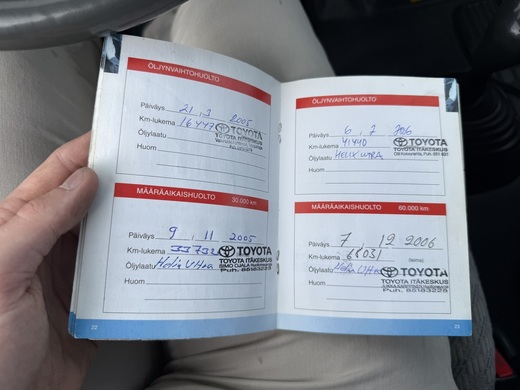 ÖLJYNVAIHTOHUOLTO
Päiväys 21.3 2005
Km-lukema 16447 TOYOTA
Öljylaatu TOYOTA ITÄKESKUS
Huom
MÄÄRÄAIKAISHUOLTO 30.000 km
Päiväys 9 . 11 2005
Km-lukema TOYOTA
Öljylaatu Helix Ultra TOYOTA ITÄKESKUS
Huom Puh. 85183228
22
ÖLJYNVAIHTOHUOLTO
Päiväys 6.7
Km-lukema 41440 TOYOTA
Öljylaatu HELIX ULTRA TOYOTA ITÄKESKUS
Huom
MÄÄRÄAIKAISHUOLTO 60.000 km
Päiväys 7 12 2006
Km-lukema 65031
(leima)
Öljylaatu Helix Ultra TOYOTA
Huom TOYOTA ITÄKESKUS
Puh. 85183228
23